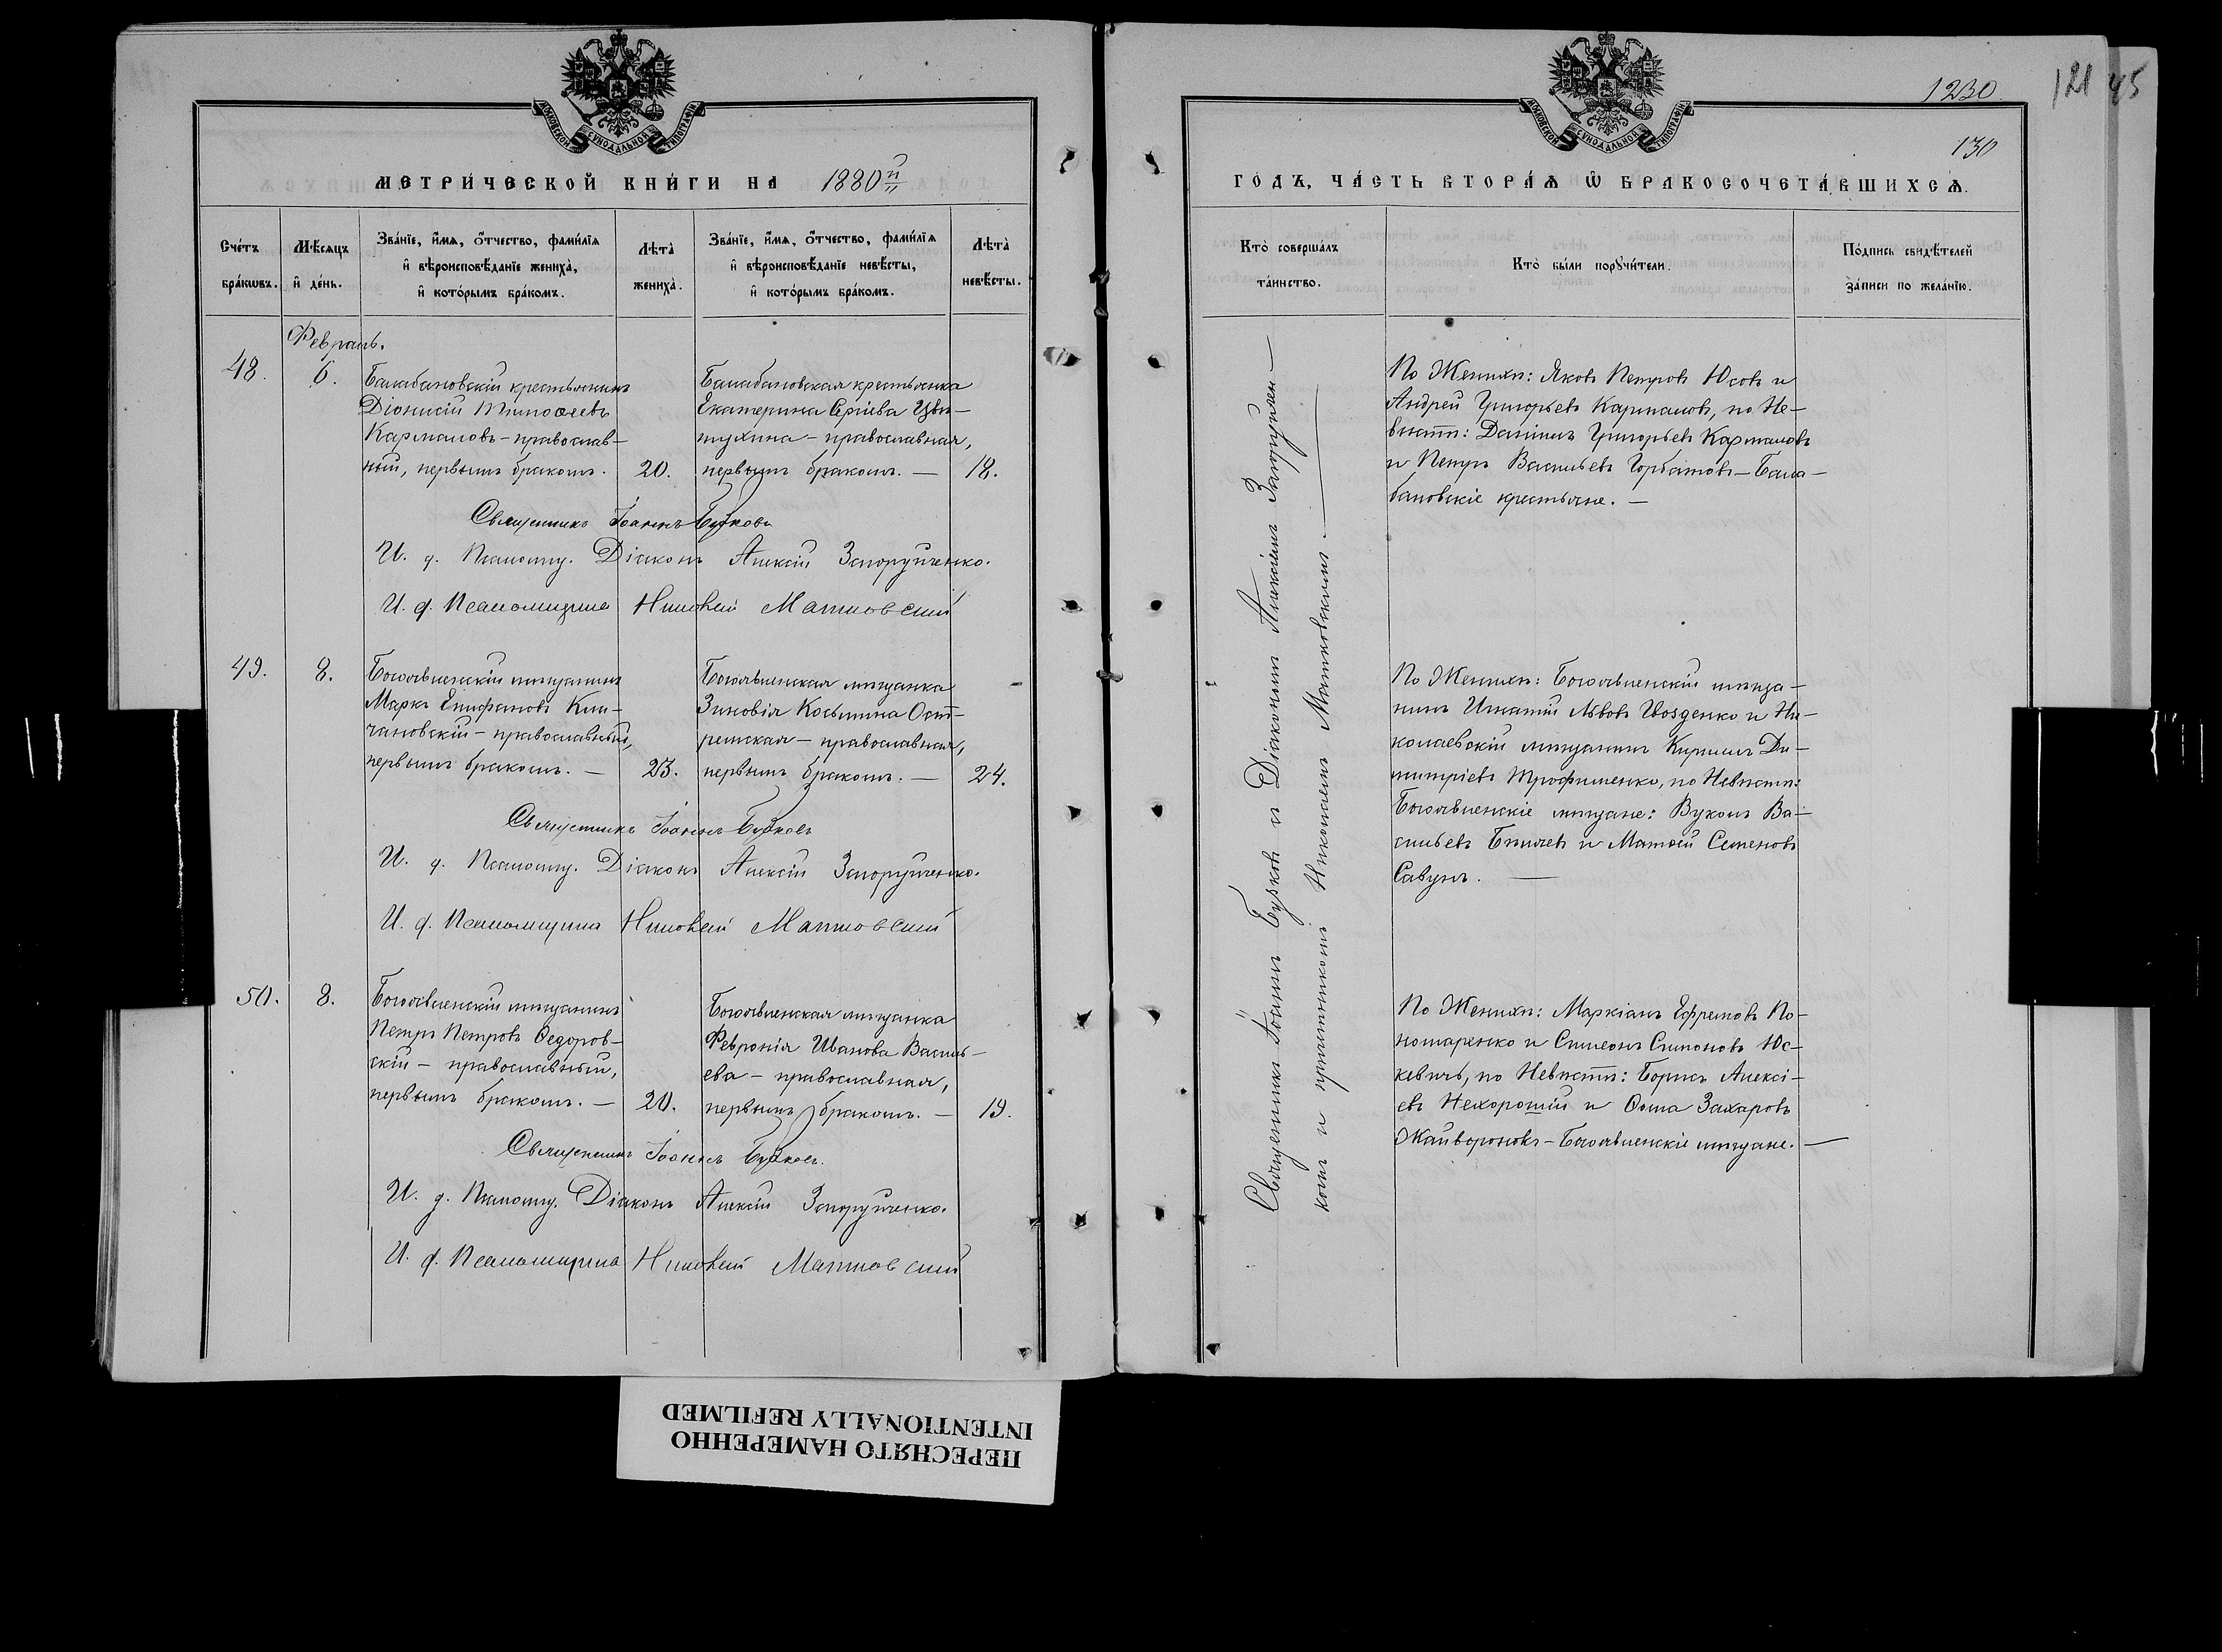 МОСКОВСКОЙ СУНОДАЛЬНОЙ ТИПОГРАФІИ
МЕТРИ́ЧЕСКОЙ КНИ́ГИ НА 1880й
Сче́тъ бра́кѡвъ.
Мѣ́сяцъ и҆ де́нь.
Зва́нїе, и҆́мѧ, ѻ҆́тчество, фамѝлїѧ и҆ вѣроисповѣ́данїе женихà, и҆ кото́рымъ бра́комъ.
Лѣ́та женихà.
Зва́нїе, и҆́мѧ, ѻ҆́тчество, фамѝлїѧ и҆ вѣроисповѣ́данїе невѣ́сты, и҆ кото́рымъ бра́комъ.
Лѣ́та невѣ́сты.
Февраль.
48.
6.
Балабановскій крестьянинъ
Діонисій Тимоѳеевъ
Карталовъ – православ-
ный, первымъ бракомъ.
20.
Балабановская крестьянка
Екатерина Сергіева Цвѣ-
тухина – православная,
первымъ бракомъ. –
18.
Священникъ Іоаннъ Бурковъ
И. д. Псаломщ. Діаконъ Алексій Запорученко.
И. д. Псаломщика Николай Матковский
49.
8.
Богоявленскій мѣщанинъ
Маркъ Епифановъ Кли-
чановскій – православный,
первымъ бракомъ. –
23.
Богоявленская мѣщанка
Зиновія Косьмина Ост-
ренская – православная,
первымъ бракомъ. –
24.
Священникъ Іоаннъ Бурковъ
И. д. Псаломщ. Діаконъ Алексій Запорученко.
И. д. Псаломщика Николай Матковский
50.
8.
Богоявленскій мѣщанинъ
Петръ Петровъ Ѳедоров-
скій – православный,
первымъ бракомъ. –
20.
Богоявленская мѣщанка
Февронія Иванова Василь-
ева – православная,
первымъ бракомъ. –
19.
Священникъ Іоаннъ Бурковъ.
И. д. Псаломщ. Діаконъ Алексій Запорученко.
И. д. Псаломщика Николай Матковский
1230
121 45
130
МОСКОВСКОЙ СУНОДАЛЬНОЙ ТИПОГРАФІИ
ГО́ДЪ, ЧА́СТЬ ВТОРА́Ѧ Ѡ҆ БРАКОСОЧЕТА́ВШИХСѦ.
Кто̀ соверша́лъ та́инство.
Кто̀ бы́ли порꙋчи́тели.
По́дпись свидѣ́телей за́писи по жела́нїю.
Священникъ Іоаннъ Бурковъ съ Діакономъ Алексіемъ Запорученко-
комъ и причетникомъ Николаемъ Матковскимъ. –
По Женихѣ: Яковъ Петровъ Юсовъ и
Андрей Григорьевъ Карталовъ, по Не-
вѣстѣ: Даніилъ Григорьевъ Карталовъ
и Петръ Васильевъ Горбатовъ – Бала-
бановскіе крестьяне. –
По Женихѣ: Богоявленскій мѣща-
нинъ Игнатій Львовъ и Ни-
колаевскій мѣщанинъ Кириллъ Ди-
митріевъ Трофименко, по Невѣстѣ:
Богоявленскіе мѣщане: Вуколъ Ва-
сильевъ и Матѳей Семеновъ
Савунъ. –
По Женихѣ: Маркіанъ Ефремовъ По-
номаренко и Симеонъ Симоновъ Юс-
кевичъ, по Невѣстѣ: Борисъ Алексі-
евъ Нехорошій и Ѳома Захаровъ
Жайворонокъ – Богоявленскіе мѣщане. –
ПЕРЕСНЯТО НАМЕРЕННО
INTENTIONALLY REFILMED